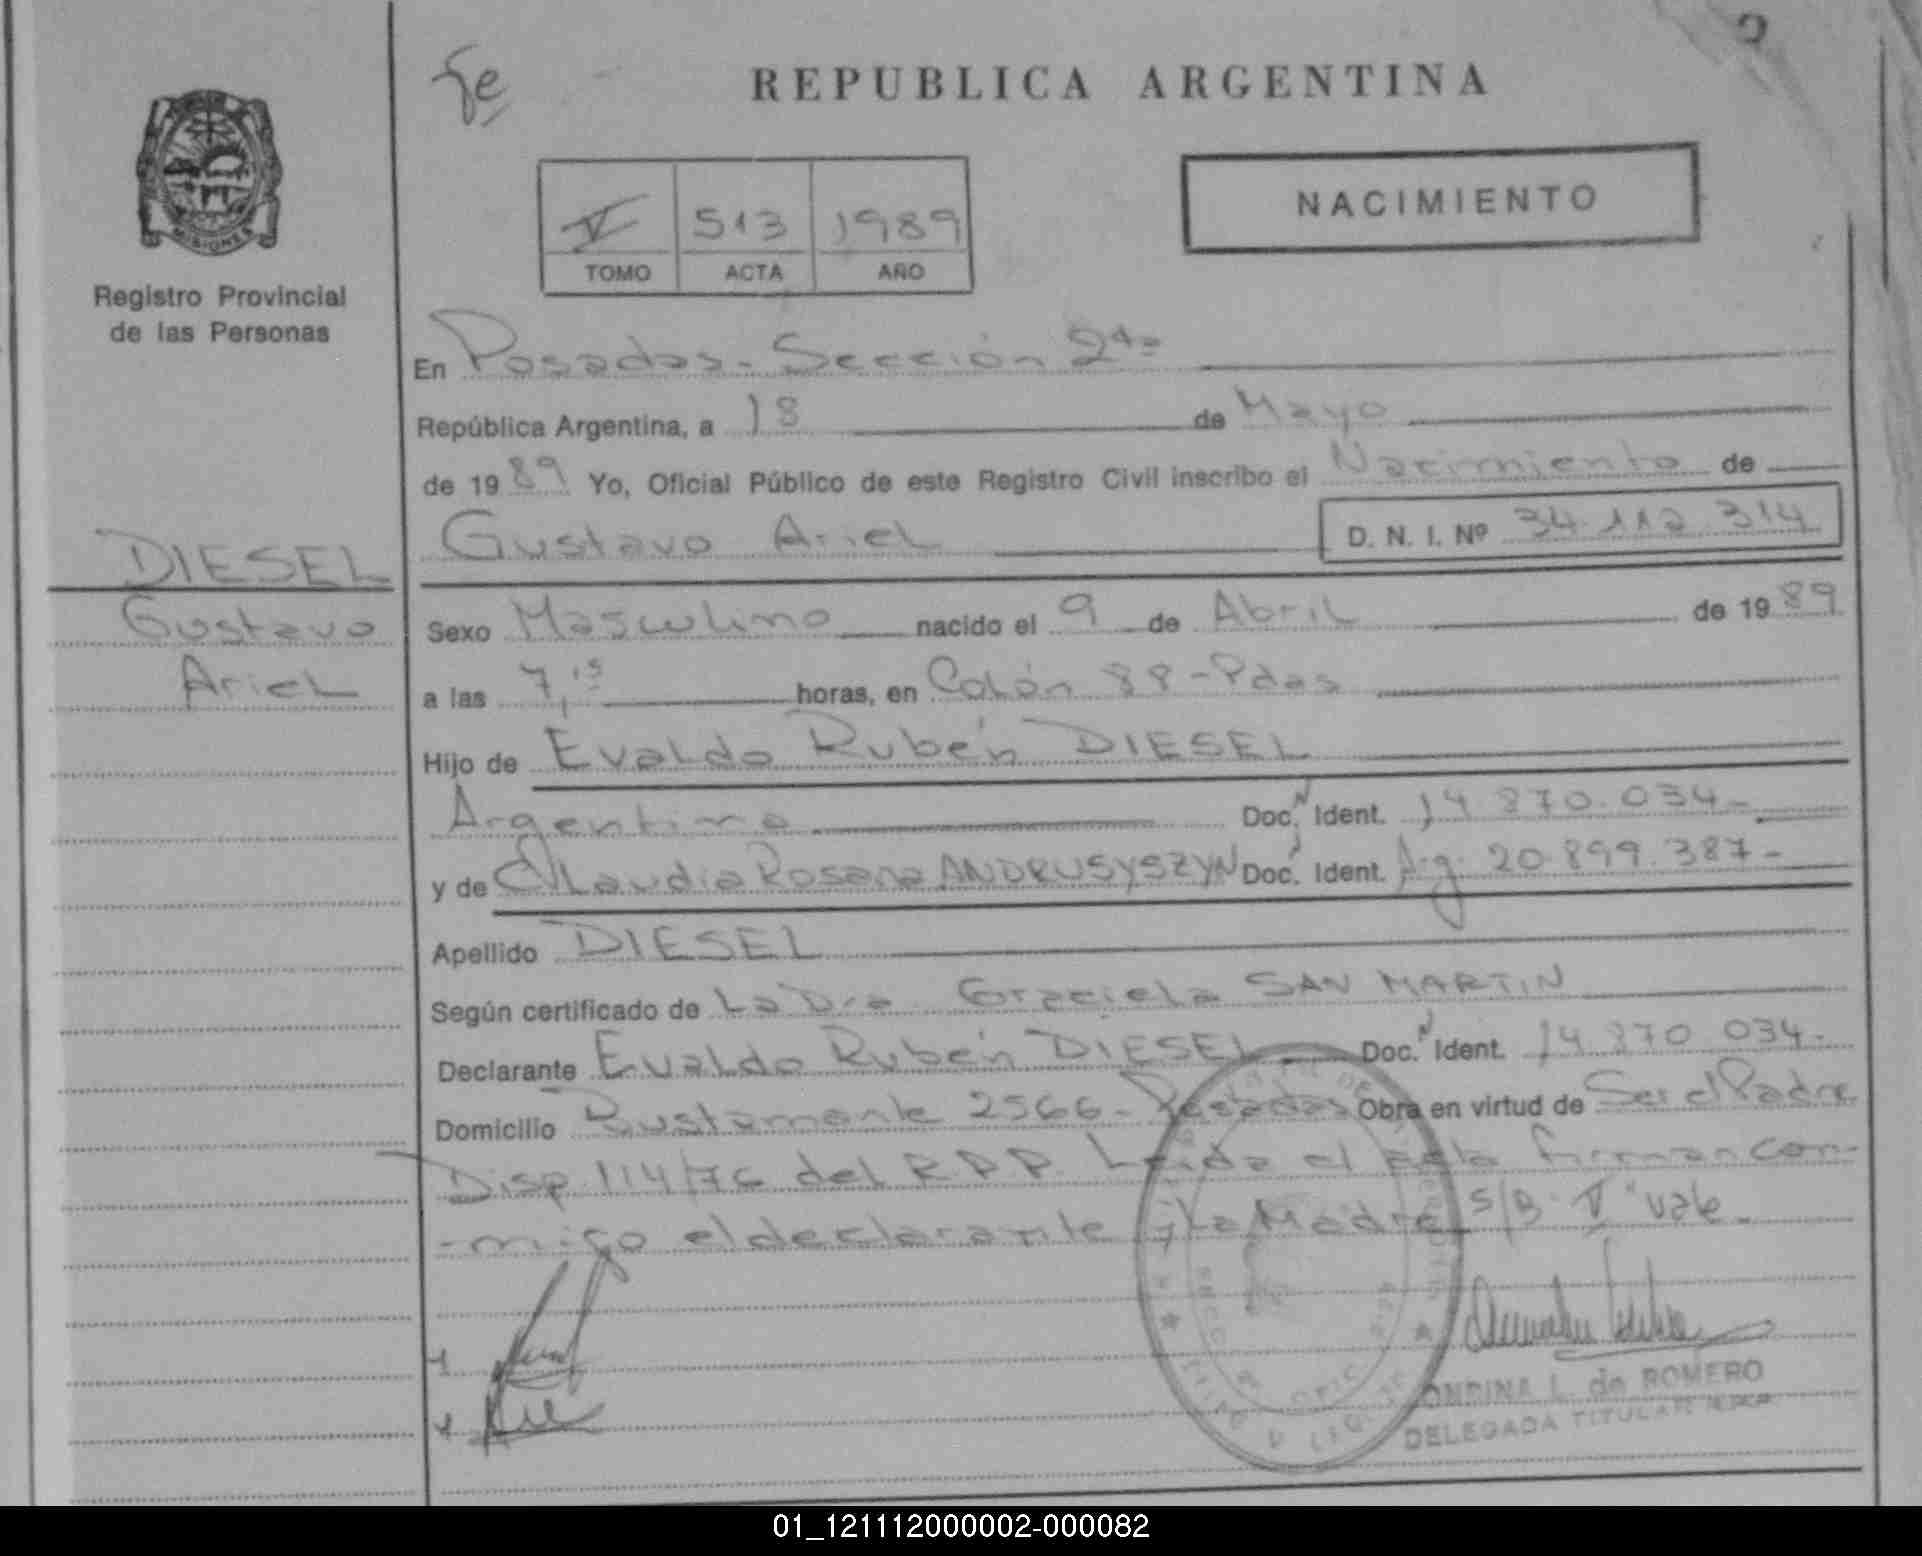 REPUBLICA ARGENTINA
MISIONES
Registro Provincial
de las Personas
V 513 1989
TOMO ACTA AÑO
NACIMIENTO
En Posadas - Sección 2da
República Argentina, a 18 de Mayo
de 1989 Yo, Oficial Público de este Registro Civil inscribo el Nacimiento de
Gustavo Ariel D. N. I. Nº 34.112.314
DIESEL
Gustavo
Ariel
Sexo Masculino nacido el 9 de Abril de 1989
a las 7,15 horas, en Colón 88 - Pdas
Hijo de Evaldo Rubén DIESEL
Argentino Doc. Ident. 14.870.034-
y de Claudia Rosana ANDRUSYSZYN Doc. Ident. Arg. 20.899.387-
Apellido DIESEL
Según certificado de La Dra Graciela SAN MARTIN
Declarante Evaldo Rubén DIESEL Doc. Ident. 14.870.034-
Domicilio Bustamante 2566 - Posadas Obra en virtud de Ser el Padre
Disp. 114/76 del R.P.P. Leida el acta firman con-
-migo el declarante y la Madre S/B. V "vale
ONDINA L. de ROMERO
DELEGADA TITULAR
01_121112000002-000082